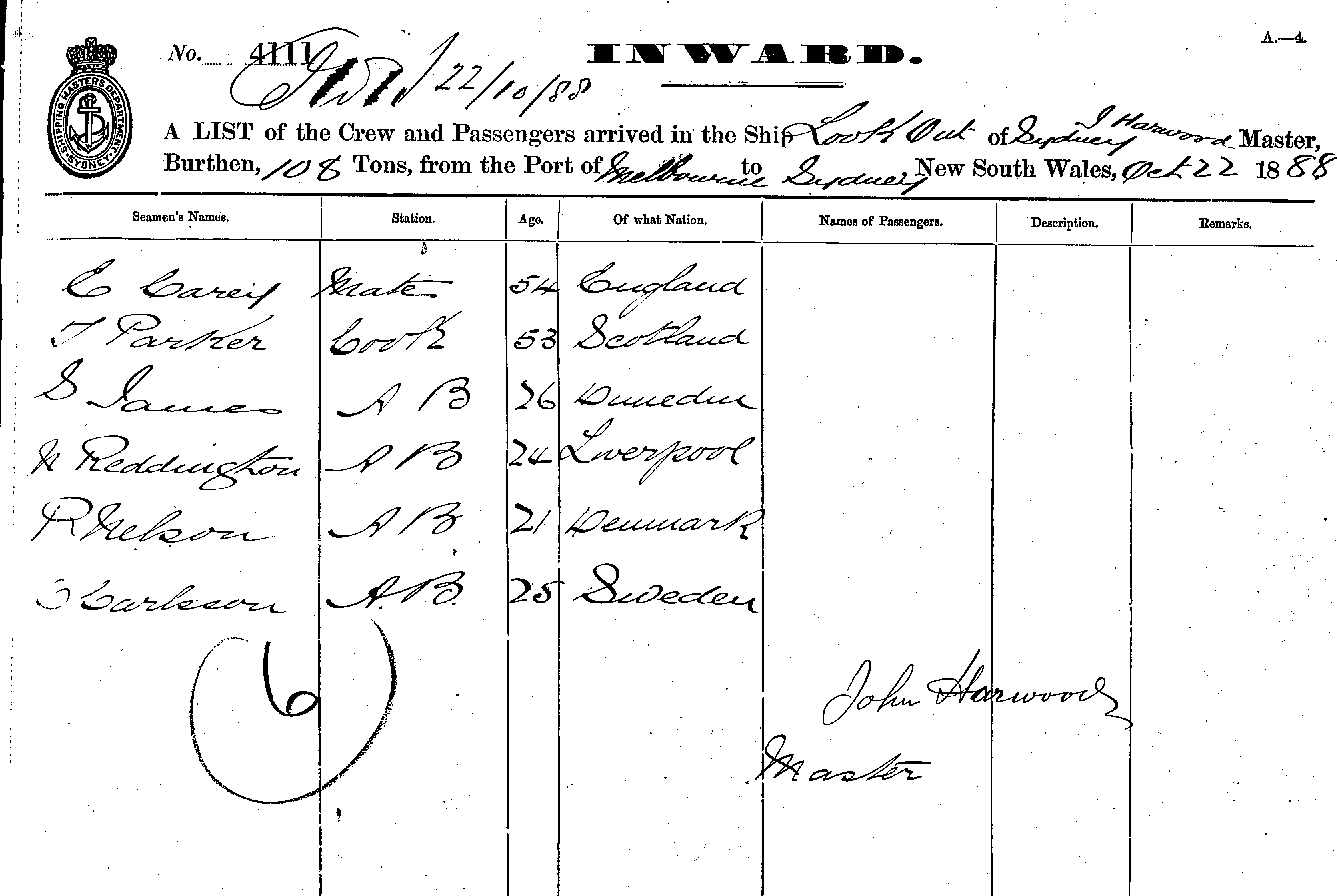 A.—4.
No. 4111
INWARD.
22/10/88
SHIPPING MASTERS DEPARTMENT SYDNEY
A LIST of the Crew and Passengers arrived in the Ship Look Out of Sydney J Harwood Master,
Burthen, 108 Tons, from the Port of Melbourne to Sydney New South Wales, Oct 22 1888
Seamen's Names. Station. Age. Of what Nation. Names of Passengers. Description. Remarks.
E Carey Mate 54 England
T Parker Cook 53 Scotland
S James A B 26 Dunedin
N Reddington A B 24 Liverpool
R Nelson A B 21 Denmark
C Carlsson A.B. 25 Sweden
6
John Harwood
Master